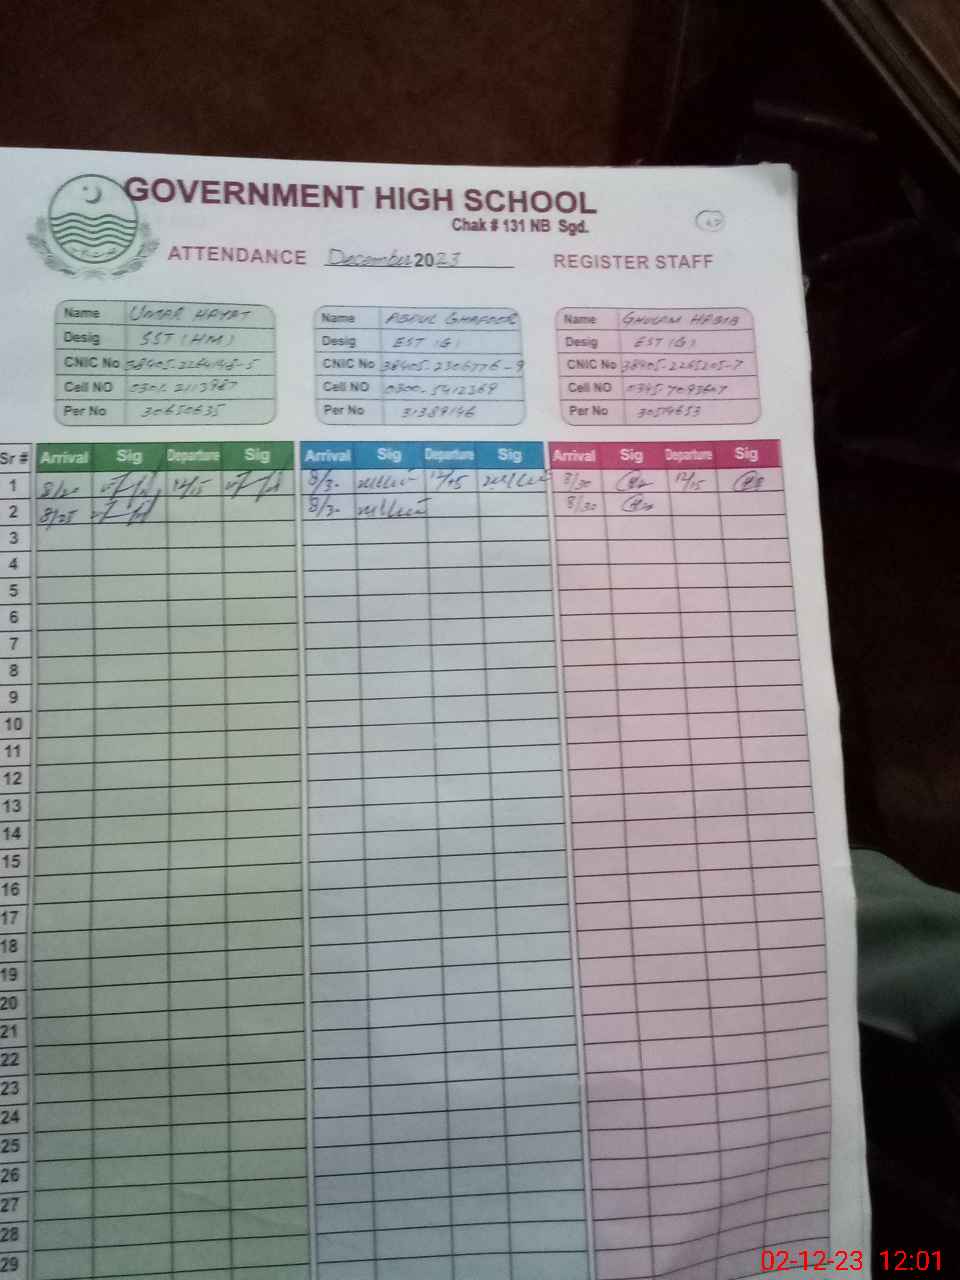 GOVERNMENT HIGH SCHOOL
Chak # 131 NB Sgd.
ATTENDANCE December 2023 REGISTER STAFF
Name UMAR HAYAT Name ABDUL GHAFOOR Name GHULAM HABIB
Desig SST (HM) Desig EST (G) Desig EST (G)
CNIC No CNIC No 38405-2306776-9 CNIC No 38405-2265205-7
Cell NO Cell NO 0300-5412369 Cell NO
Per No 30650635 Per No 31389146 Per No 30514653
Sr # Arrival Sig Departure Sig Arrival Sig Departure Sig Arrival Sig Departure Sig
1 8/20 12/15 8/30 12/15 8/30 12/15
2 8/25 8/30 8/30
3
4
5
6
7
8
9
10
11
12
13
14
15
16
17
18
19
20
21
22
23
24
25
26
27
28
29
02-12-23 12:01